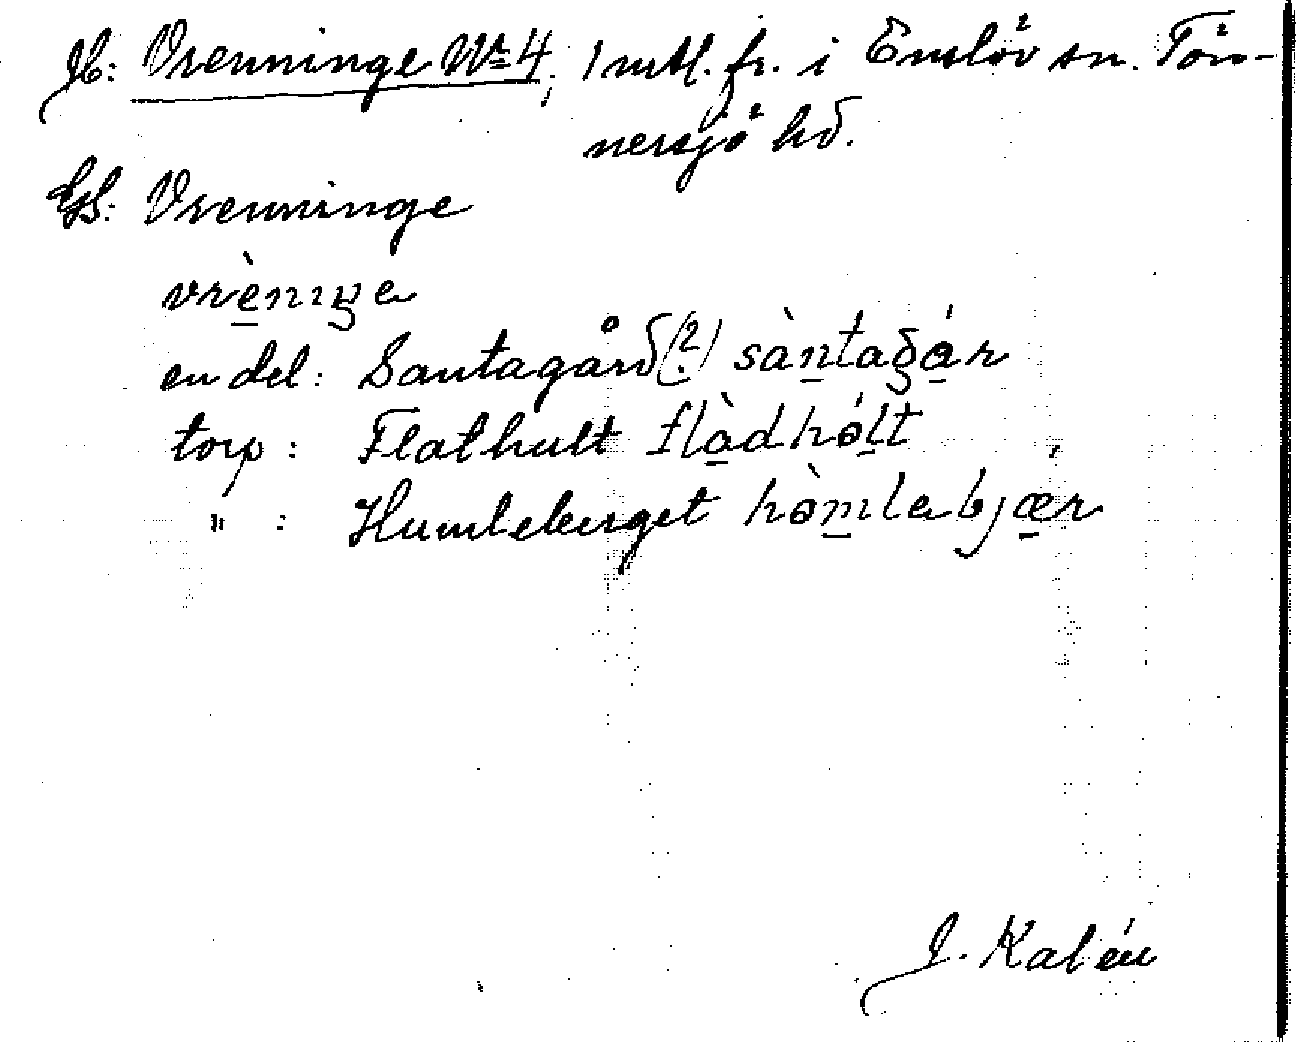 Jb: Vrenninge No 4, 1 mtl. fr. i Enslöv sn. Tön-
nersjö hd.
GS: Vrenninge
vrèniŋe
en del: Santagård(?) sàntagár
torp: Flathult flàdhólt
" : Humleberget hòmlebjær
J. Kalén